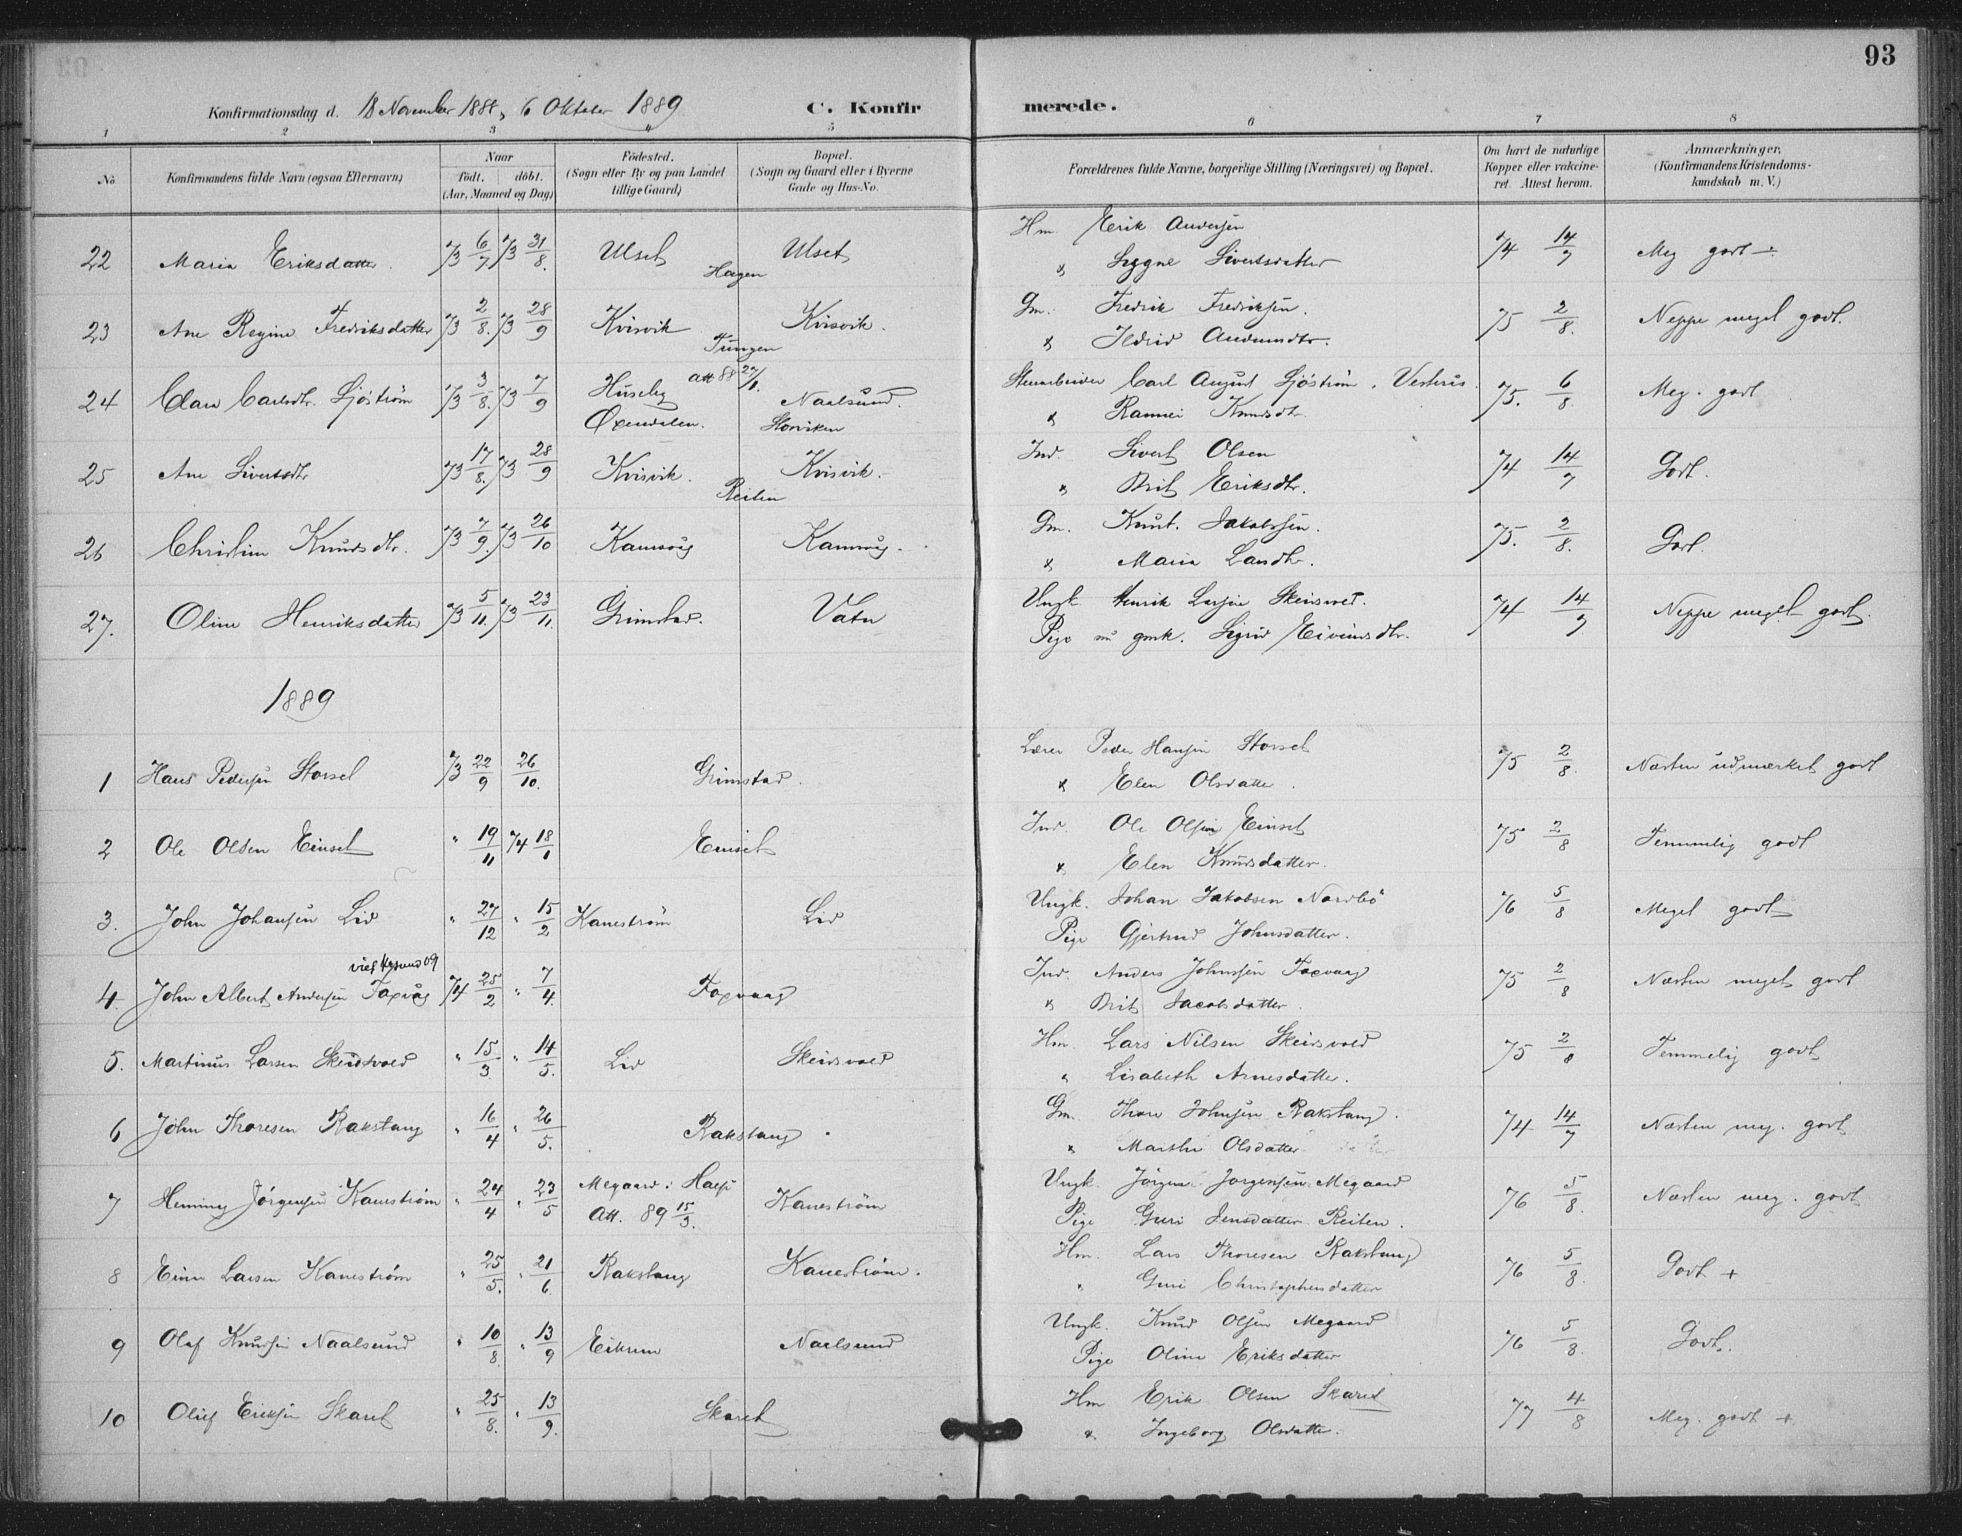 93
Konfirmationsdag d. 18 November 1888, 6 Oktober 1889
C. Konfirmerede.
1 2 3 4 5 6 7 8
No
Konfirmandens fulde Navn (ogsaa Efternavn)
Naar
født. døbt.
(Aar, Maaned og Dag)
Födested.
(Sogn eller By og paa Landet
tillige Gaard)
Bopæl.
(Sogn og Gaard eller i Byerne
Gade og Hus-No.
Forældrenes fulde Navne, borgerlige Stilling (Næringsvei) og Bopæl.
Om havt de naturlige
Kopper eller vakcine-
ret. Attest herom.
Anmærkninger,
(Konfirmandens Kristendoms-
kundskab m. V.)
22 Maria Eriksdatter 73 6/7 73 31/8. Ulset Hagen Ulset
Hm. Erik Andersen
" Siggne Sivertsdatter
74 14/7 Meg godt ÷
23 Ane Regine Fredriksdatter 73 2/8. 73 28/9 Kvisvik Tungen Kvisvik.
Gm. Fredrik Fredriksen.
" Ildrid Amundsdtr.
75 2/8. Neppe meget godt.
24 Clara Carlsdtr. Sjöström 73 3/8. 73 7/9 Huseby Øxendalen. att 88 27/1. Naalsund. Storviken
Stenarbeider Carl August Sjöström, Vesterås.
" Rannei Knudsdtr.
75. 6/8 Meg. godt
25 Ane Sivertsdtr 73 17/8. 73 28/9 Kvisvik. Reiten Kvisvik.
Ind. Sivert Olsen
" Brit Eriksdtr.
74 14/7 Godt.
26 Christine Knudsdtr. 73 7/9. 73 26/10 Kamsvåg Kamsvåg.
Gm. Knut. Jakobsen.
" Maria Larsdtr.
75. 2/8. Godt.
27. Oline Henriksdatter 73 5/11. 73 23/11. Grimstad. Vatn
Ungk. Henrik Larsen Skeisvol.
Pige nu gmk. Sigrid Eivindsdtr.
74 14/7 Neppe meget godt.
1889
1 Hans Pedersen Storset 73 22/9 26/10. Grimstad.
Lærer Peder Hansen Storset
" Elen Olsdatter.
75 2/8. Næsten udmærket godt
2 Ole Olsen Einset " 19/11 74 18/1 Einset
Ind. Ole Olsen Einset
" Elen Knudsdatter.
75 2/8 Temmelig godt
3. John Johansen Lid " 27/12 " 15/2 Kanestrøm Lid
Ungk. Johan Jakobsen Nordbö
Pige Gjertrud Johnsdatter.
76 5/8 Meget godt
4. John Albert Andersen Foxvåg viet Kr.sund 09 74 25/2 " 7/4. Foxvaag
Ind. Anders Johnsen Foxvaag
" Brit Jacobsdatter.
75 2/8 Næsten meget godt
5. Martinus Larsen Skeidsvold " 15/3. " 14/5. Lid Skeidsvold
Hm. Lars Nilsen Skeidsvold
" Lisabeth Arnesdatter.
75 2/8 Temmelig godt
6 John Thoresen Rakstang " 16/4 " 26/5. Rakstang
Gm. Thore Johnsen Rakstang.
" Marthe Olsdatter
74 14/7 Næsten meg. godt
7 Heming Jørgensen Kanestrøm " 24/4 " 23/5 Megaard i Halse Att. 89 15/3. Kanestrøm
Ungk. Jörgen Jorgensen Megaard
Pige Guri Jensdatter Reiten.
76 5/8. Næsten meg. godt
8 Einar Larsen Kanestrøm " 25/5. " 21/6 Rakstang Kanestrøm.
Hm. Lars Thoresen Rakstang
" Guri Christophersdatter
76 5/8. Godt +
9 Olaf Knudsen Naalsund " 10/8. " 13/9 Eikrem Naalsund
Ungk. Knud Olsen Megaard
Pige Oline Eriksdatter
76 5/8 Godt.
10 Oluf Eriksen Skaret " 25/8. " 13/9. Skaret
Hm Erik Olsen Skaret
" Ingeborg Olsdatter.
77 4/8 Meg. godt +